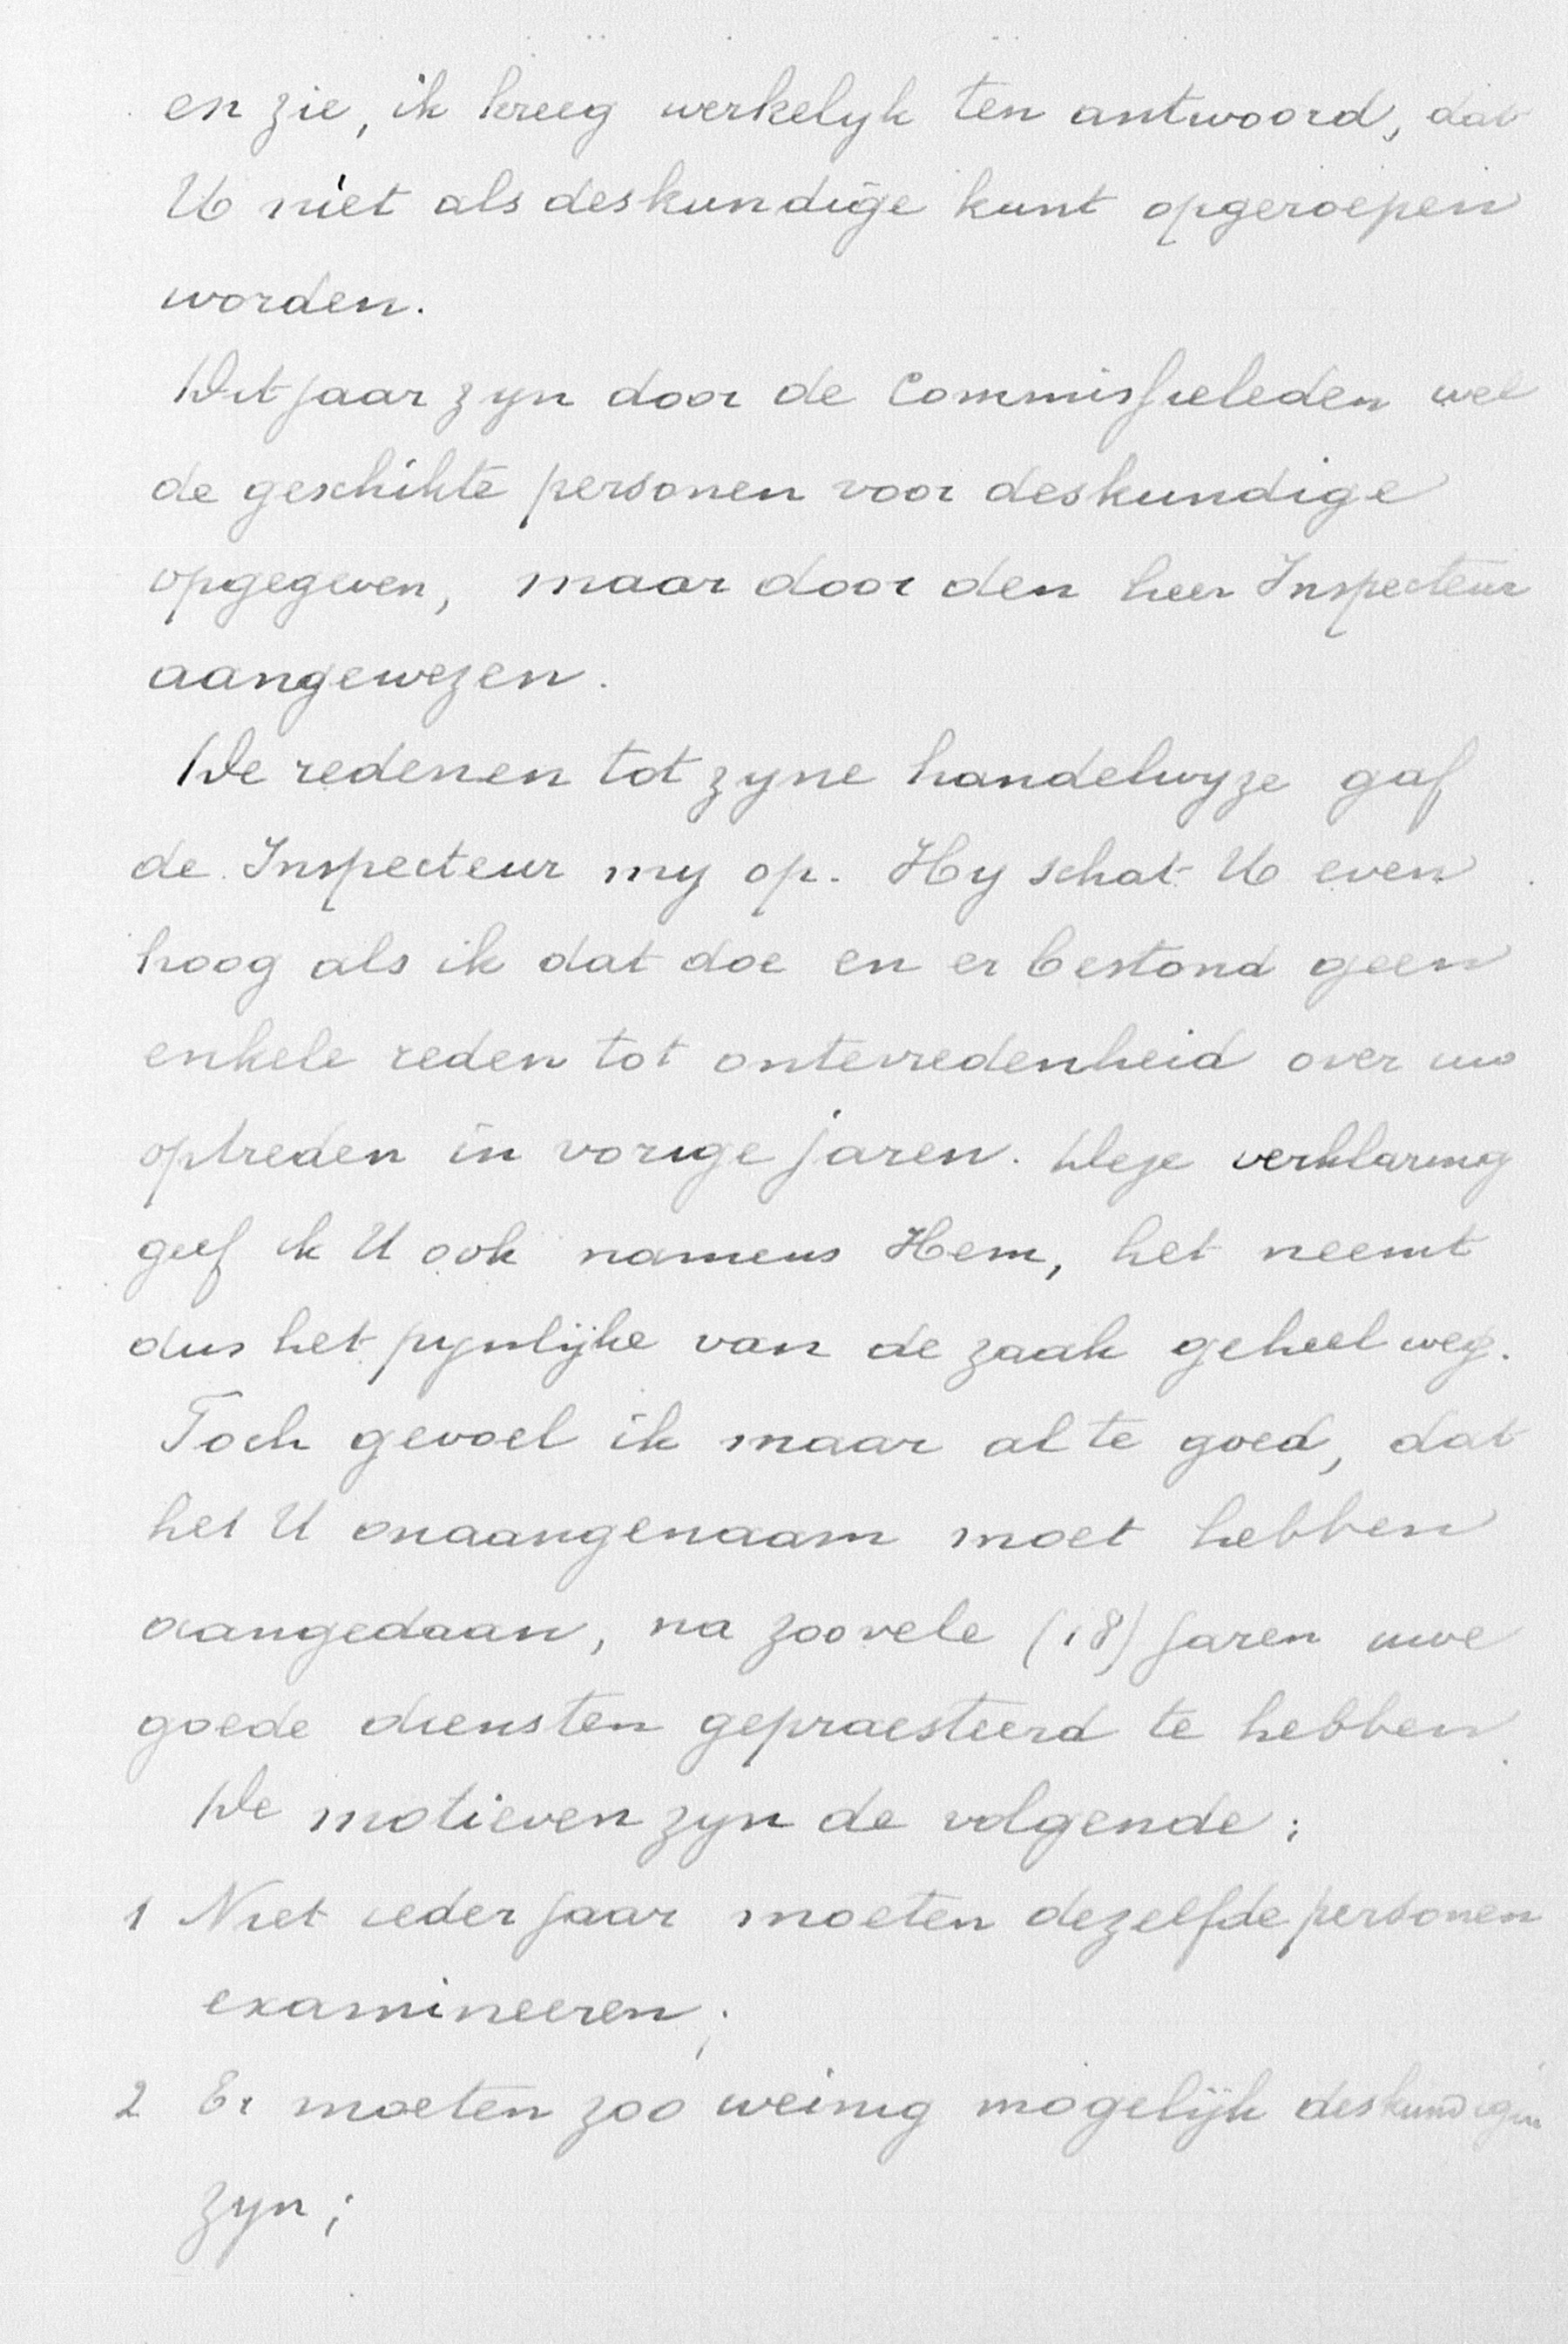 en zie, ik kreeg werkelyk ten antwoord, dat
U niet als deskundige kunt opgeroepen
worden.
Dit jaar zyn door de Commissieleden wel
de geschikte personen voor deskundige
opgegeven, maar door den heer Inspecteur
aangewezen.
De redenen tot zyne handelwyze gaf
de Inspecteur my op. Hy schat U even
hoog als ik dat doe en er bestond geen
enkele reden tot ontevredenheid over uw
optreden in vorige jaren. Deze verklaring
geef ik U ook namens Hem, het neemt
dus het pynlijke van de zaak geheel weg.
Toch gevoel ik maar al te goed, dat
het U onaangenaam moet hebben
aangedaan, na zoovele (18) jaren uwe
goede diensten gepraesteerd te hebben.
De motieven zyn de volgende:
1 Niet ieder jaar moeten dezelfde personen
examineeren;
2 Er moeten zoo weinig mogelijk deskundigen
zyn;